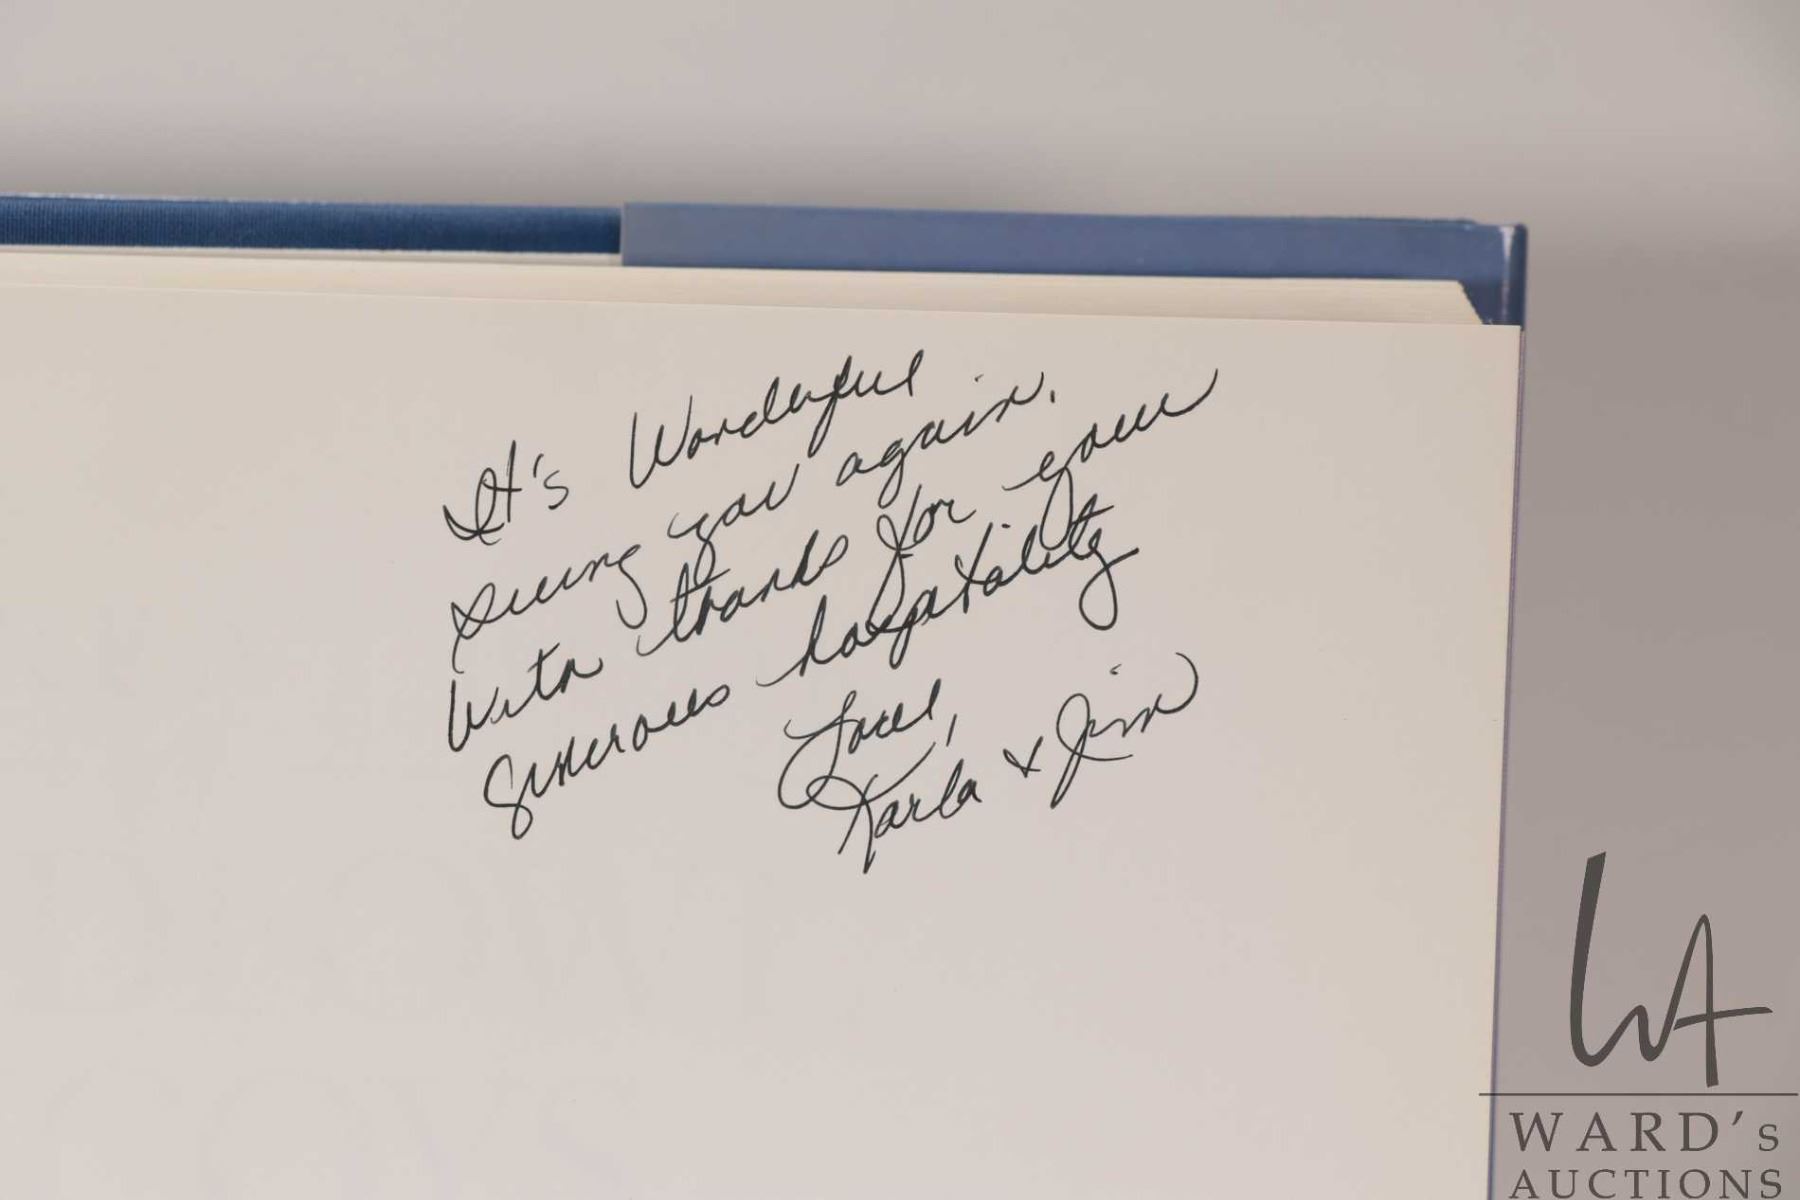 It's Wonderful
seeing you again.
With thanks for your
generous hospitality
Love,
Karla & Jim
WA
WARD's
AUCTIONS